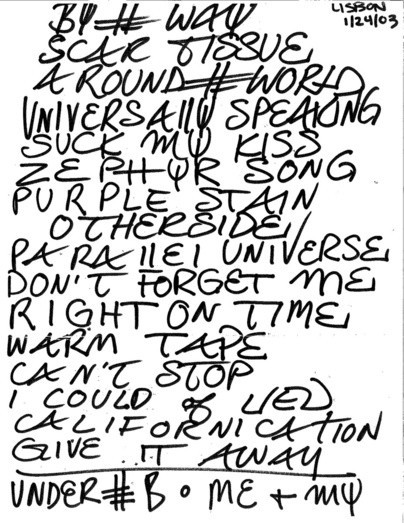 LISBON
1/24/03
BY # WAY
SCAR TISSUE
AROUND # WORLD
UNIVERSALLY SPEAKING
SUCK MY KISS
ZEPHYR SONG
PURPLE STAIN
OTHERSIDE/
PARALLEL UNIVERSE
DON'T FORGET ME
RIGHT ON TIME
WARM TAPE
CAN'T STOP
I COULD of LIED
CALIFORNICATION
GIVE IT AWAY
UNDER # B • ME + MY